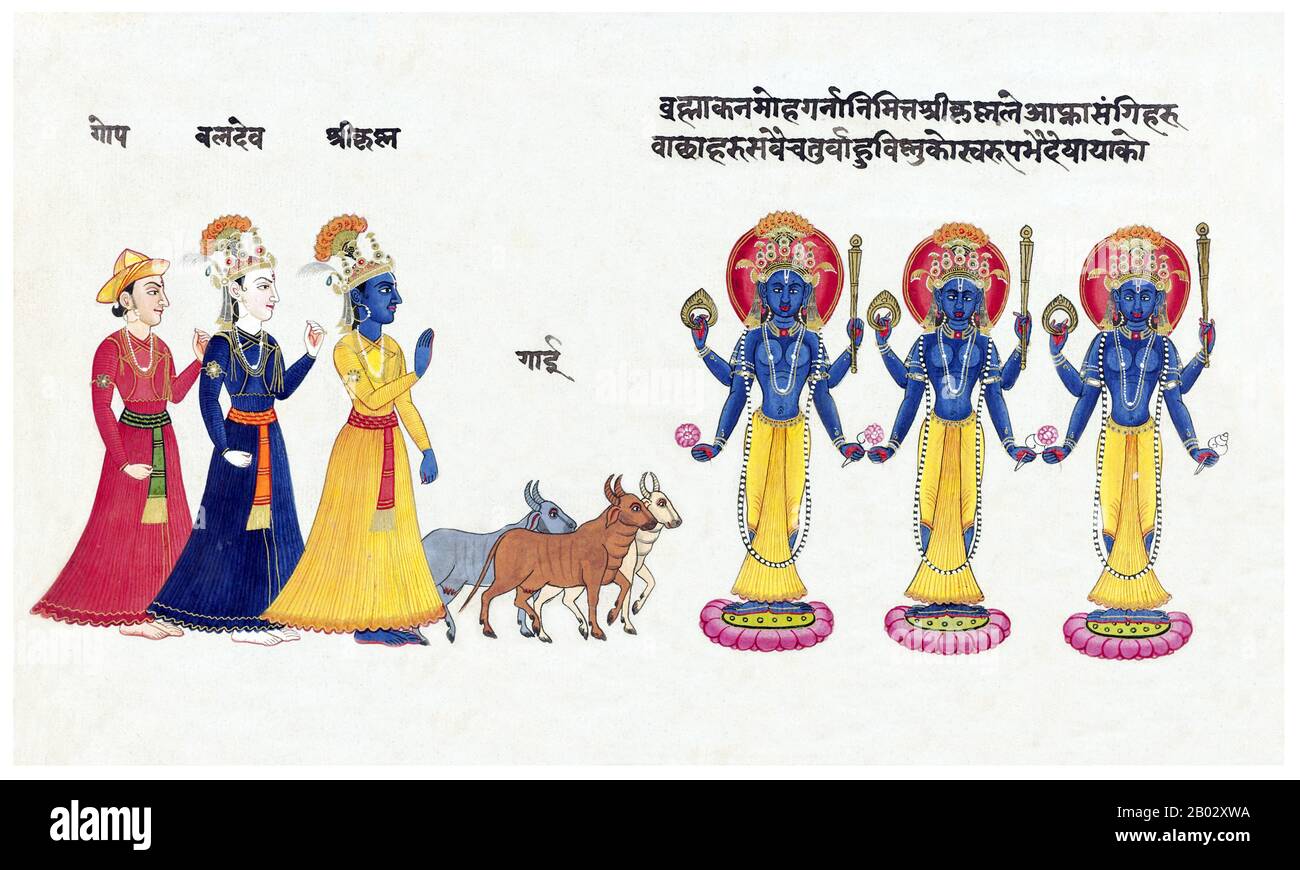 गोप
बलदेव
श्रीकृष्ण
गाई
ब्रह्माकन मोह गर्ना निमित्त श्रीकृष्णले आफ्ना संगिहरु
वाछाहरु सवै चतुर्वाहु विष्णुको स्वरूप भै देषायाको
alamy
Image ID: B02XWA
www.alamy.com